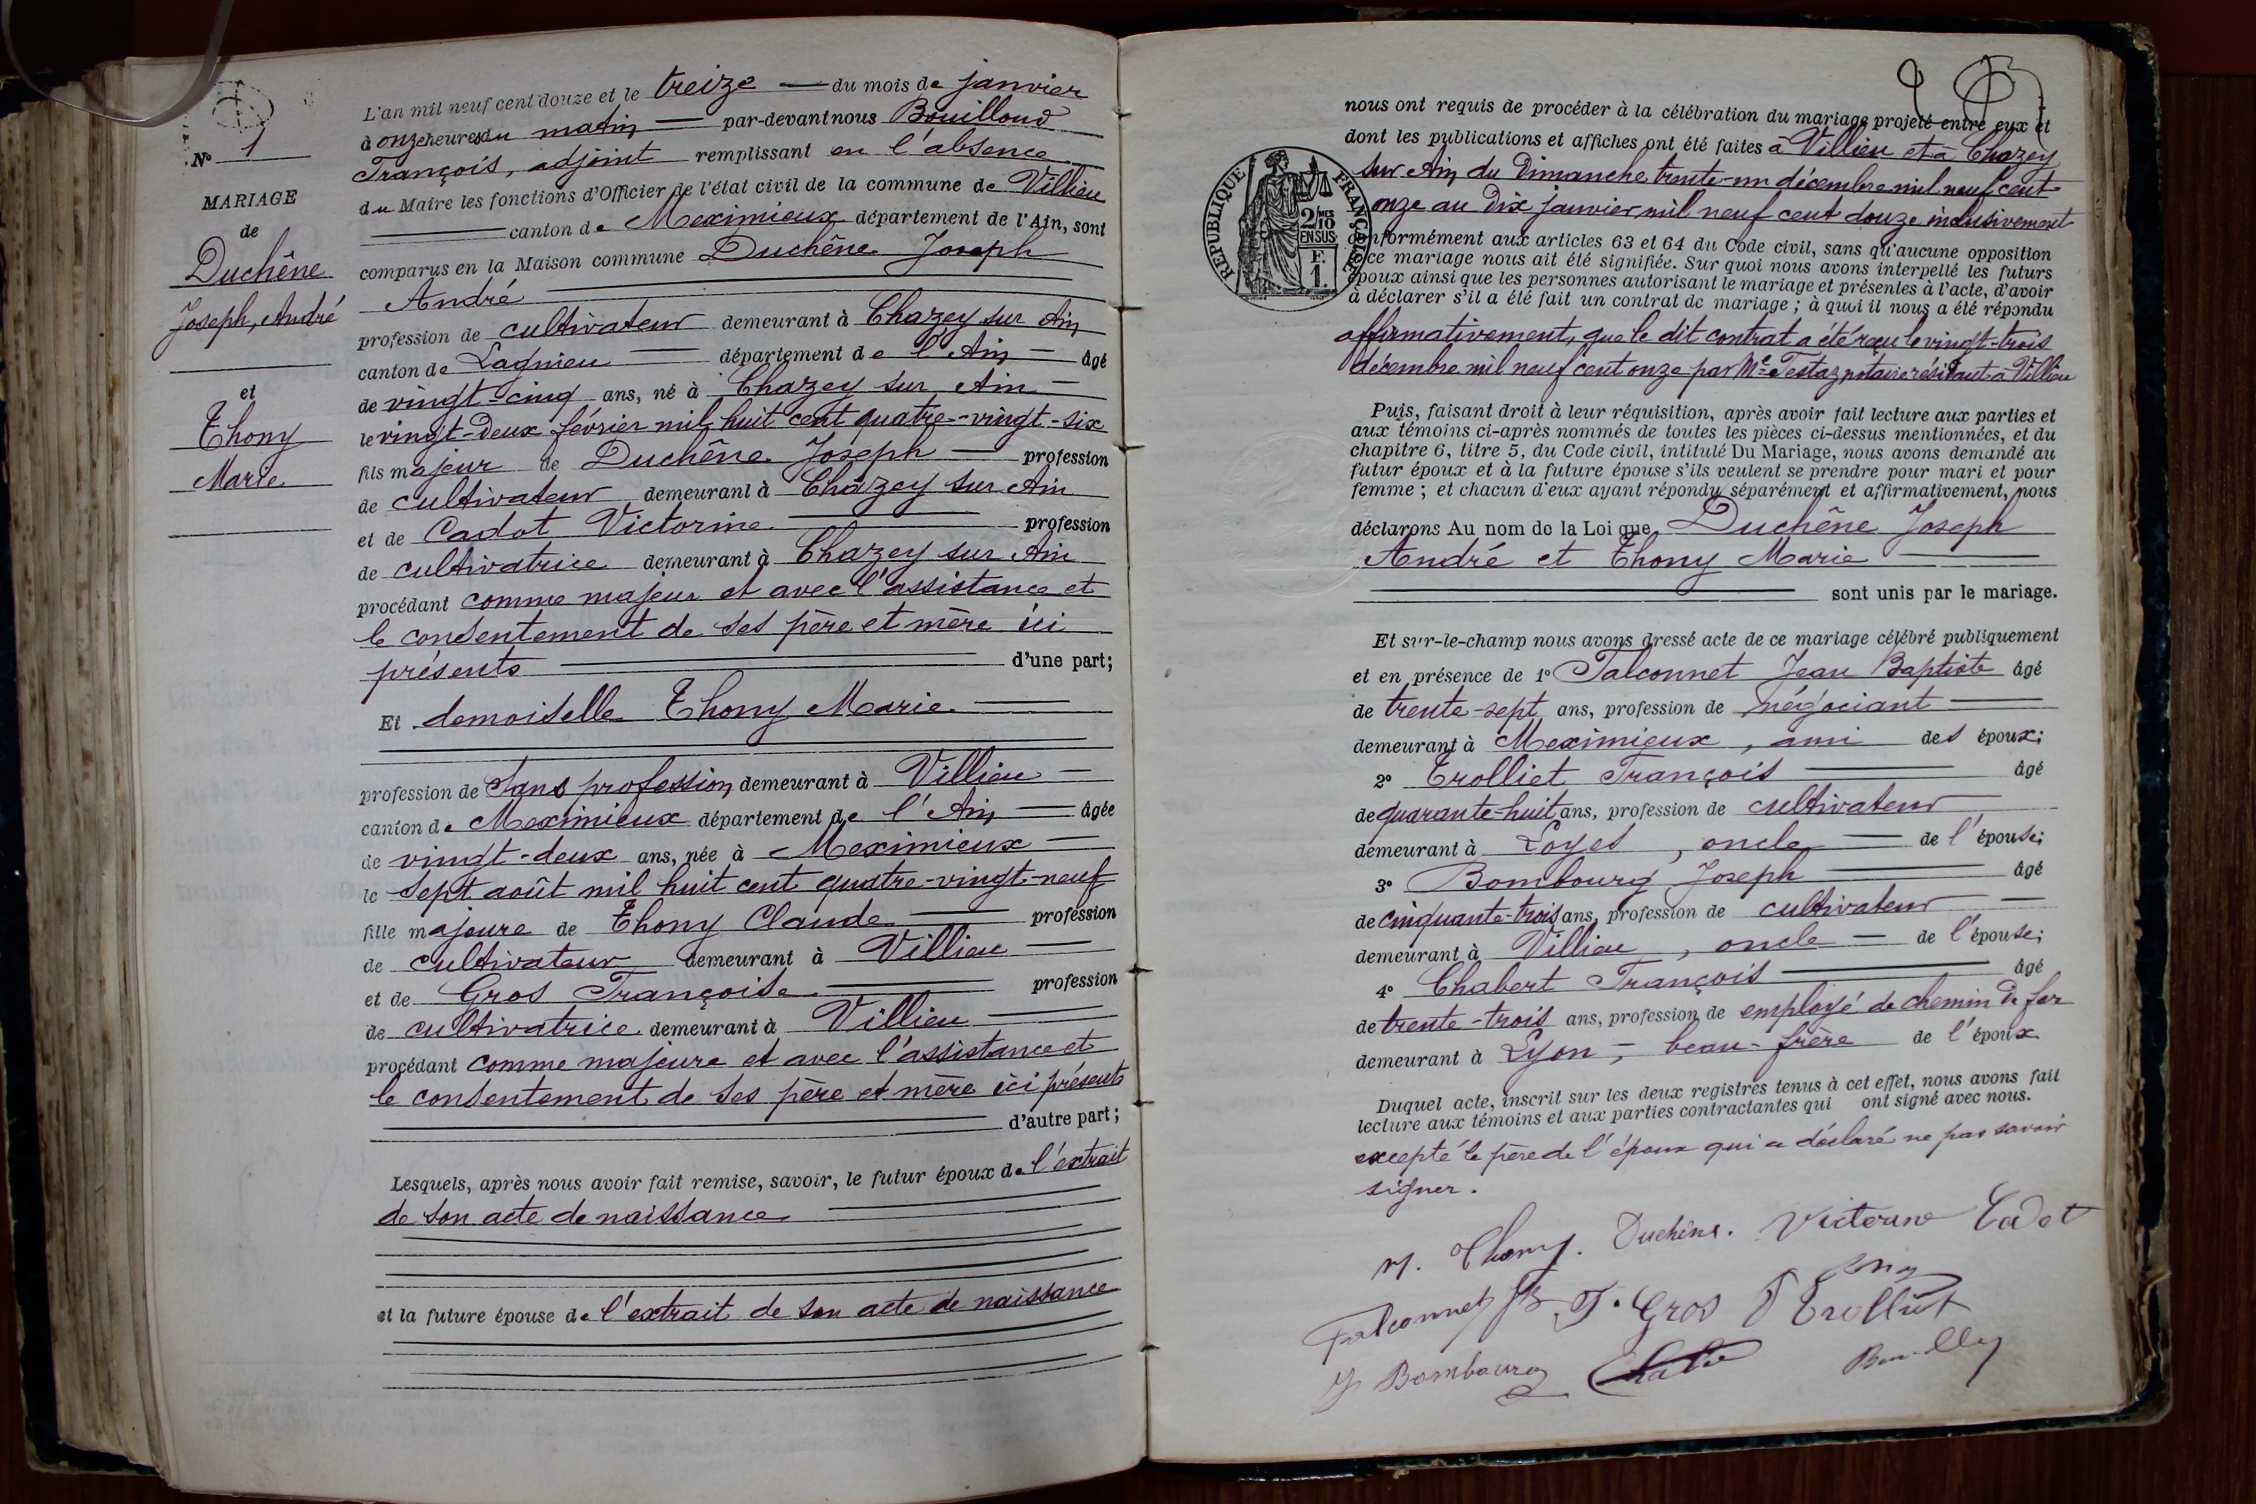 N° 1
MARIAGE
de
Duchêne
Joseph, André
et
Thony
Marie
L'an mil neuf cent douze et le treize du mois de janvier
à onze heures du matin par-devant nous Bouilloud
François, adjoint remplissant en l'absence
du Maire les fonctions d'Officier de l'état civil de la commune de Villieu
canton de Meximieux département de l'Ain, sont
comparus en la Maison commune Duchêne Joseph
André
profession de cultivateur demeurant à Chazey sur Ain
canton de Lagnieu département de l'Ain âgé
de vingt-cinq ans, né à Chazey sur Ain
le vingt-deux février mil huit cent quatre-vingt-six
fils majeur de Duchêne Joseph profession
de cultivateur demeurant à Chazey sur Ain
et de Cadot Victorine profession
de cultivatrice demeurant à Chazey sur Ain
procédant comme majeur et avec l'assistance et
le consentement de ses père et mère ici
présents d'une part;
Et demoiselle Thony Marie
profession de Sans profession demeurant à Villieu
canton de Meximieux département de l'Ain âgée
de vingt-deux ans, née à Meximieux
le sept août mil huit cent quatre-vingt-neuf
fille majeure de Thony Claude profession
de cultivateur demeurant à Villieu
et de Gros Françoise profession
de cultivatrice demeurant à Villieu
procédant comme majeure et avec l'assistance et
le consentement de ses père et mère ici présents
d'autre part;
Lesquels, après nous avoir fait remise, savoir, le futur époux de l'extrait
de son acte de naissance
et la future épouse de l'extrait de son acte de naissance
nous ont requis de procéder à la célébration du mariage projeté entre eux et
dont les publications et affiches ont été faites à Villieu et à Chazey
sur Ain du Dimanche trente-un décembre mil neuf cent
onze au Dix janvier mil neuf cent douze inclusivement
RÉPUBLIQUE FRANÇAISE
2/10 MES
EN SUS
F.
1.
conformément aux articles 63 et 64 du Code civil, sans qu'aucune opposition
ce mariage nous ait été signifiée. Sur quoi nous avons interpellé les futurs
époux ainsi que les personnes autorisant le mariage et présentes à l'acte, d'avoir
à déclarer s'il a été fait un contrat de mariage; à quoi il nous a été répondu
affirmativement, que le dit contrat a été reçu le vingt-trois
décembre mil neuf cent onze par Me Testaz notaire résidant à Villieu
Puis, faisant droit à leur réquisition, après avoir fait lecture aux parties et
aux témoins ci-après nommés de toutes les pièces ci-dessus mentionnées, et du
chapitre 6, titre 5, du Code civil, intitulé Du Mariage, nous avons demandé au
futur époux et à la future épouse s'ils veulent se prendre pour mari et pour
femme; et chacun d'eux ayant répondu séparément et affirmativement, nous
déclarons Au nom de la Loi que Duchêne Joseph
André et Thony Marie
sont unis par le mariage.
Et sur-le-champ nous avons dressé acte de ce mariage célébré publiquement
et en présence de 1° Falconnet Jean Baptiste âgé
de trente-sept ans, profession de négociant
demeurant à Meximieux, ami des époux;
2° Trolliet François âgé
de quarante-huit ans, profession de cultivateur
demeurant à Loyes, oncle de l'épouse;
3° Bombourg Joseph âgé
de cinquante-trois ans, profession de cultivateur
demeurant à Villieu, oncle de l'épouse;
4° Chabert François âgé
de trente-trois ans, profession de employé de chemin de fer
demeurant à Lyon, beau-frère de l'époux
Duquel acte, inscrit sur les deux registres tenus à cet effet, nous avons fait
lecture aux témoins et aux parties contractantes qui ont signé avec nous.
excepté le père de l'époux qui a déclaré ne pas savoir
signer.
M. Thony. Duchêne. Victorine Cadot
Falconnet JB F. Gros F Trolliet
J Bombourg